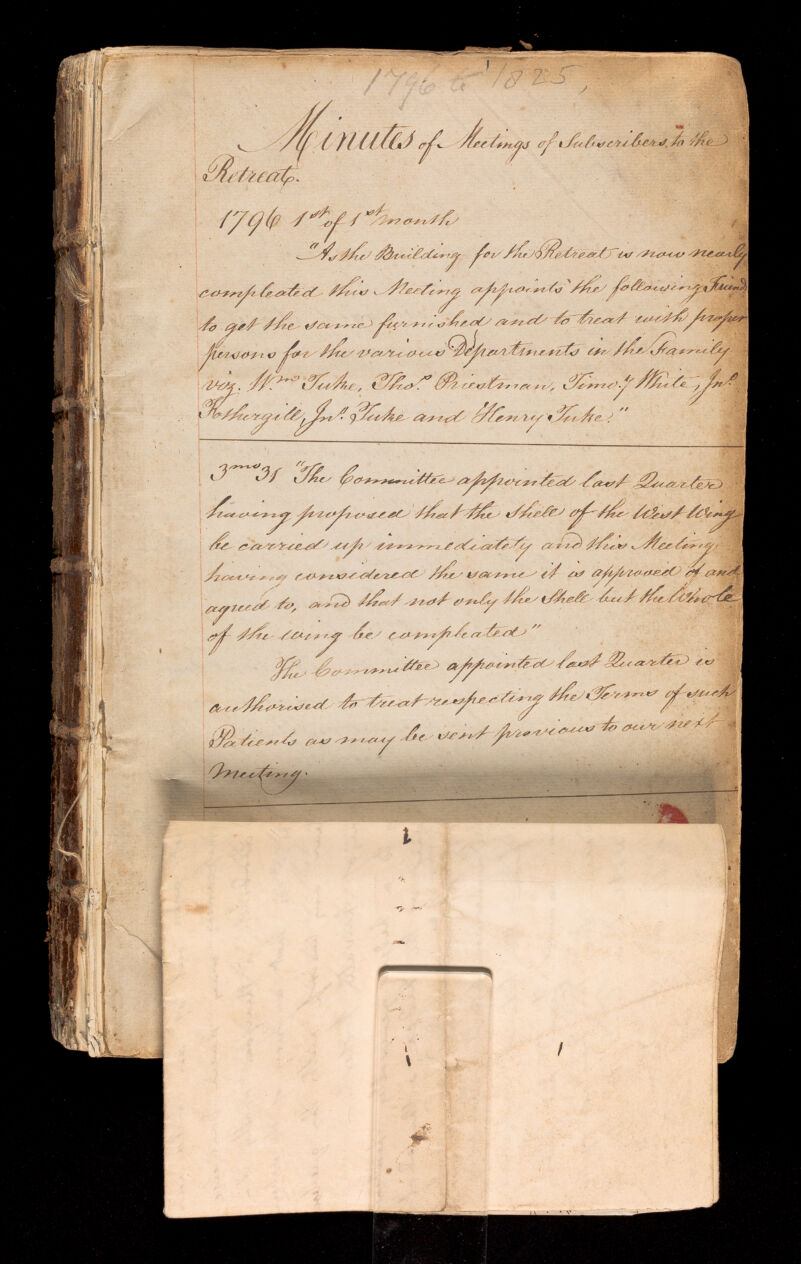 1796 to 1825,
Minutes of Meetings of Subscribers, to the
Retreat.
1796 1st of 1st month
"As the Building for the Retreat is now nearly
compleated this Meeting appoints the following Friends
to get the same furnished and to treat with proper
persons for the various Departments in the Family
viz. Wm. Tuke, Thos. Priestman, Timoy White, Jno.
Fothergill, Jno. Tuke and Henry Tuke."
3mo 31 "The Committee appointed last Quarter
having proposed that the Shell of the West Wing
be carried up immediately and this Meeting
having considered the same it is approved of and
agreed to, and that not only the Shell but the Whole
of the wing be compleated"
The Committee appointed last Quarter is
authorised to treat respecting the Terms of such
Patients as may be sent previous to our next
Meeting.